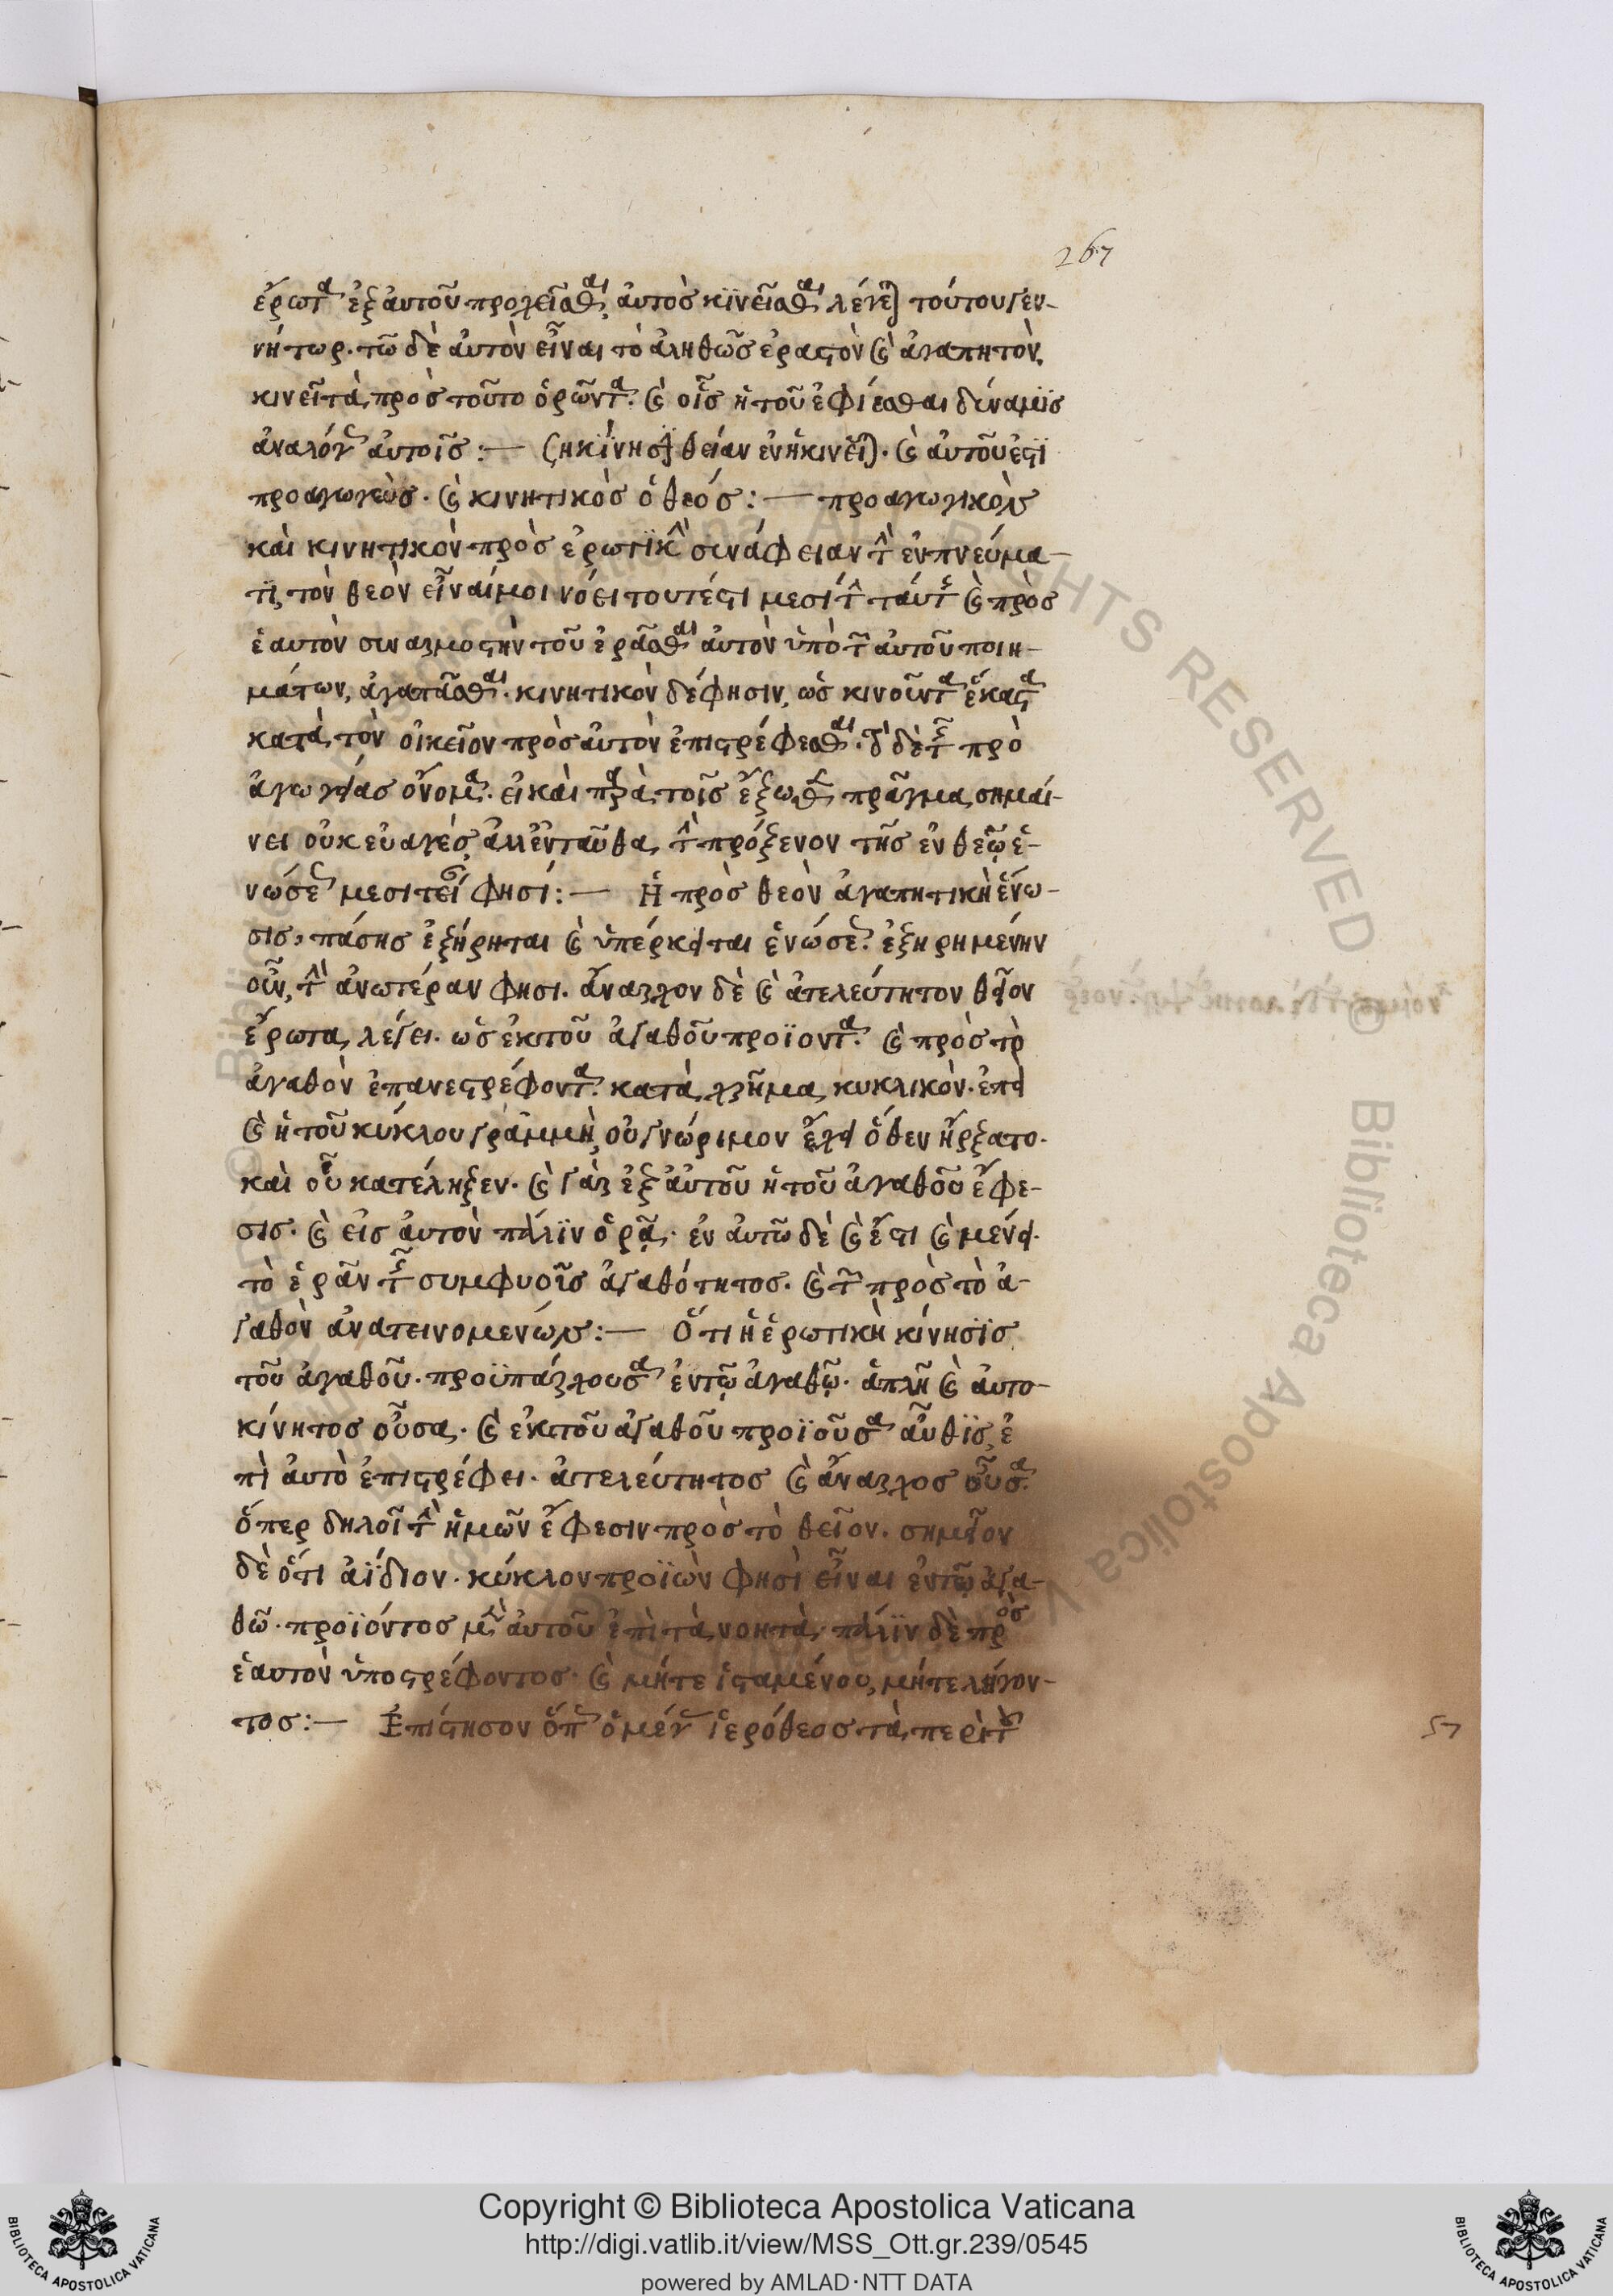 267
ἔρωτα ἐξ αὐτοῦ προχεῖσθαι, αὐτὸς κϊνεῖσθαι λέγεται τούτου γεν-
νήτωρ. τῶ δὲ αὐτὸν εἶναι τὸ ἀληθῶς ἐραστὸν καὶ ἀγαπητὸν,
κινεῖ τὰ πρὸς τοῦτο ὁρῶντα. καὶ οἷς ἡ τοῦ ἐφίεσθαι δύναμϊς
ἀναλόγως αὐτοῖς :— καὶ αὐτοῦ ἐστϊ
προαγωγεὺς. καὶ κινητικὸς ὁ θεός :— προαγωγικὸν
καὶ κινητικὸν πρὸς ἐρωτϊκὴν συνάφειαν τὴν ἐν πνεύμα-
τϊ, τὸν θεὸν εἶναί μοι νόει τουτέστι μεσίτην ταύτης καὶ πρὸς
ἑαυτὸν συναρμοστὴν τοῦ ἐρᾶσθαι αὐτὸν ὑπὸ τῶν αὐτοῦ ποιη-
μάτων, ἀγαπᾶσθαι. κινητικὸν δέ φησιν, ὡς κινοῦντα ἕκαστα
κατὰ τὸν οἰκεῖον πρὸς αὐτὸν ἐπιστρέφεσθαι. τὸ δὲ τῆς προ
ἀγωγείας ὄνομα. εἰ καὶ παρὰ τοῖς ἔξωθεν πρᾶγμα σημαί-
νει οὐκ εὐαγές, ἀλλ' ἐνταῦθα τὴν πρόξενον τῆς ἐν θεῷ ἑ-
νώσεως μεσιτείαν φησί :— Ἡ πρὸς θεὸν ἀγαπητικὴ ἕνω-
σις, πάσης ἐξήρηται καὶ ὑπέρκειται ἑνώσεως. ἐξηρημένην
οὖν, τὴν ἀνωτέραν φησι. ἄναρχον δὲ καὶ ἀτελεύτητον θεῖον
ἔρωτα λέγει. ὡς ἐκ τοῦ ἀγαθοῦ προϊοντα. καὶ πρὸς τὸ
ἀγαθὸν ἐπανεστρέφοντα. κατὰ σχῆμα κυκλικὸν. ἐπεὶ
καὶ ἡ τοῦ κύκλου γραμμὴ, οὐ γνώριμον ἔχει ὅθεν ἤρξατο.
καὶ οὗ κατέληξεν. καὶ γὰρ ἐξ αὐτοῦ ἡ τοῦ ἀγαθοῦ ἔφε-
σις. καὶ εἰς αὐτὸν πάλϊν ὁρᾷ. ἐν αὐτῶ δὲ καὶ ἔστι καὶ μένει.
τὸ ἐρᾶν τῆς συμφυοῖς ἀγαθότητος. καὶ τῶν πρὸς τὸ ἀ-
γαθὸν ἀνατεινομενών :— Ὅτι ἡ ἐρωτικὴ κίνησϊς
τοῦ ἀγαθοῦ. προϋπάρχουσα ἐν τῷ ἀγαθῷ. ἁπλῆ καὶ αὐτο-
κίνητος οὖσα. καὶ ἐκ τοῦ ἀγαθοῦ προϊοῦσα αὖθϊς, ἐ
πὶ αὐτὸ ἐπιστρέφει. ἀτελεύτητος καὶ ἄναρχος οὖσα.
ὅπερ δηλοῖ τὴν ἡμῶν ἔφεσιν πρὸς τὸ θεῖον. σημεῖον
δὲ ὅτι ἀΐδιον. κύκλον προϊὼν φησὶ εἶναι ἐν τῷ ἀγα-
θῶ. προϊόντος μὲν αὐτοῦ ἐπὶ τὰ νοητὰ, πάλϊν δὲ πρὸς
ἑαυτὸν ὑποστρέφοντος. καὶ μήτε ἱσταμένου, μήτε λήγον-
τος :— Ἐπίστησον ὅπως ὁ μέγας ἱερόθεος τὰ περὶ τοῦ
57